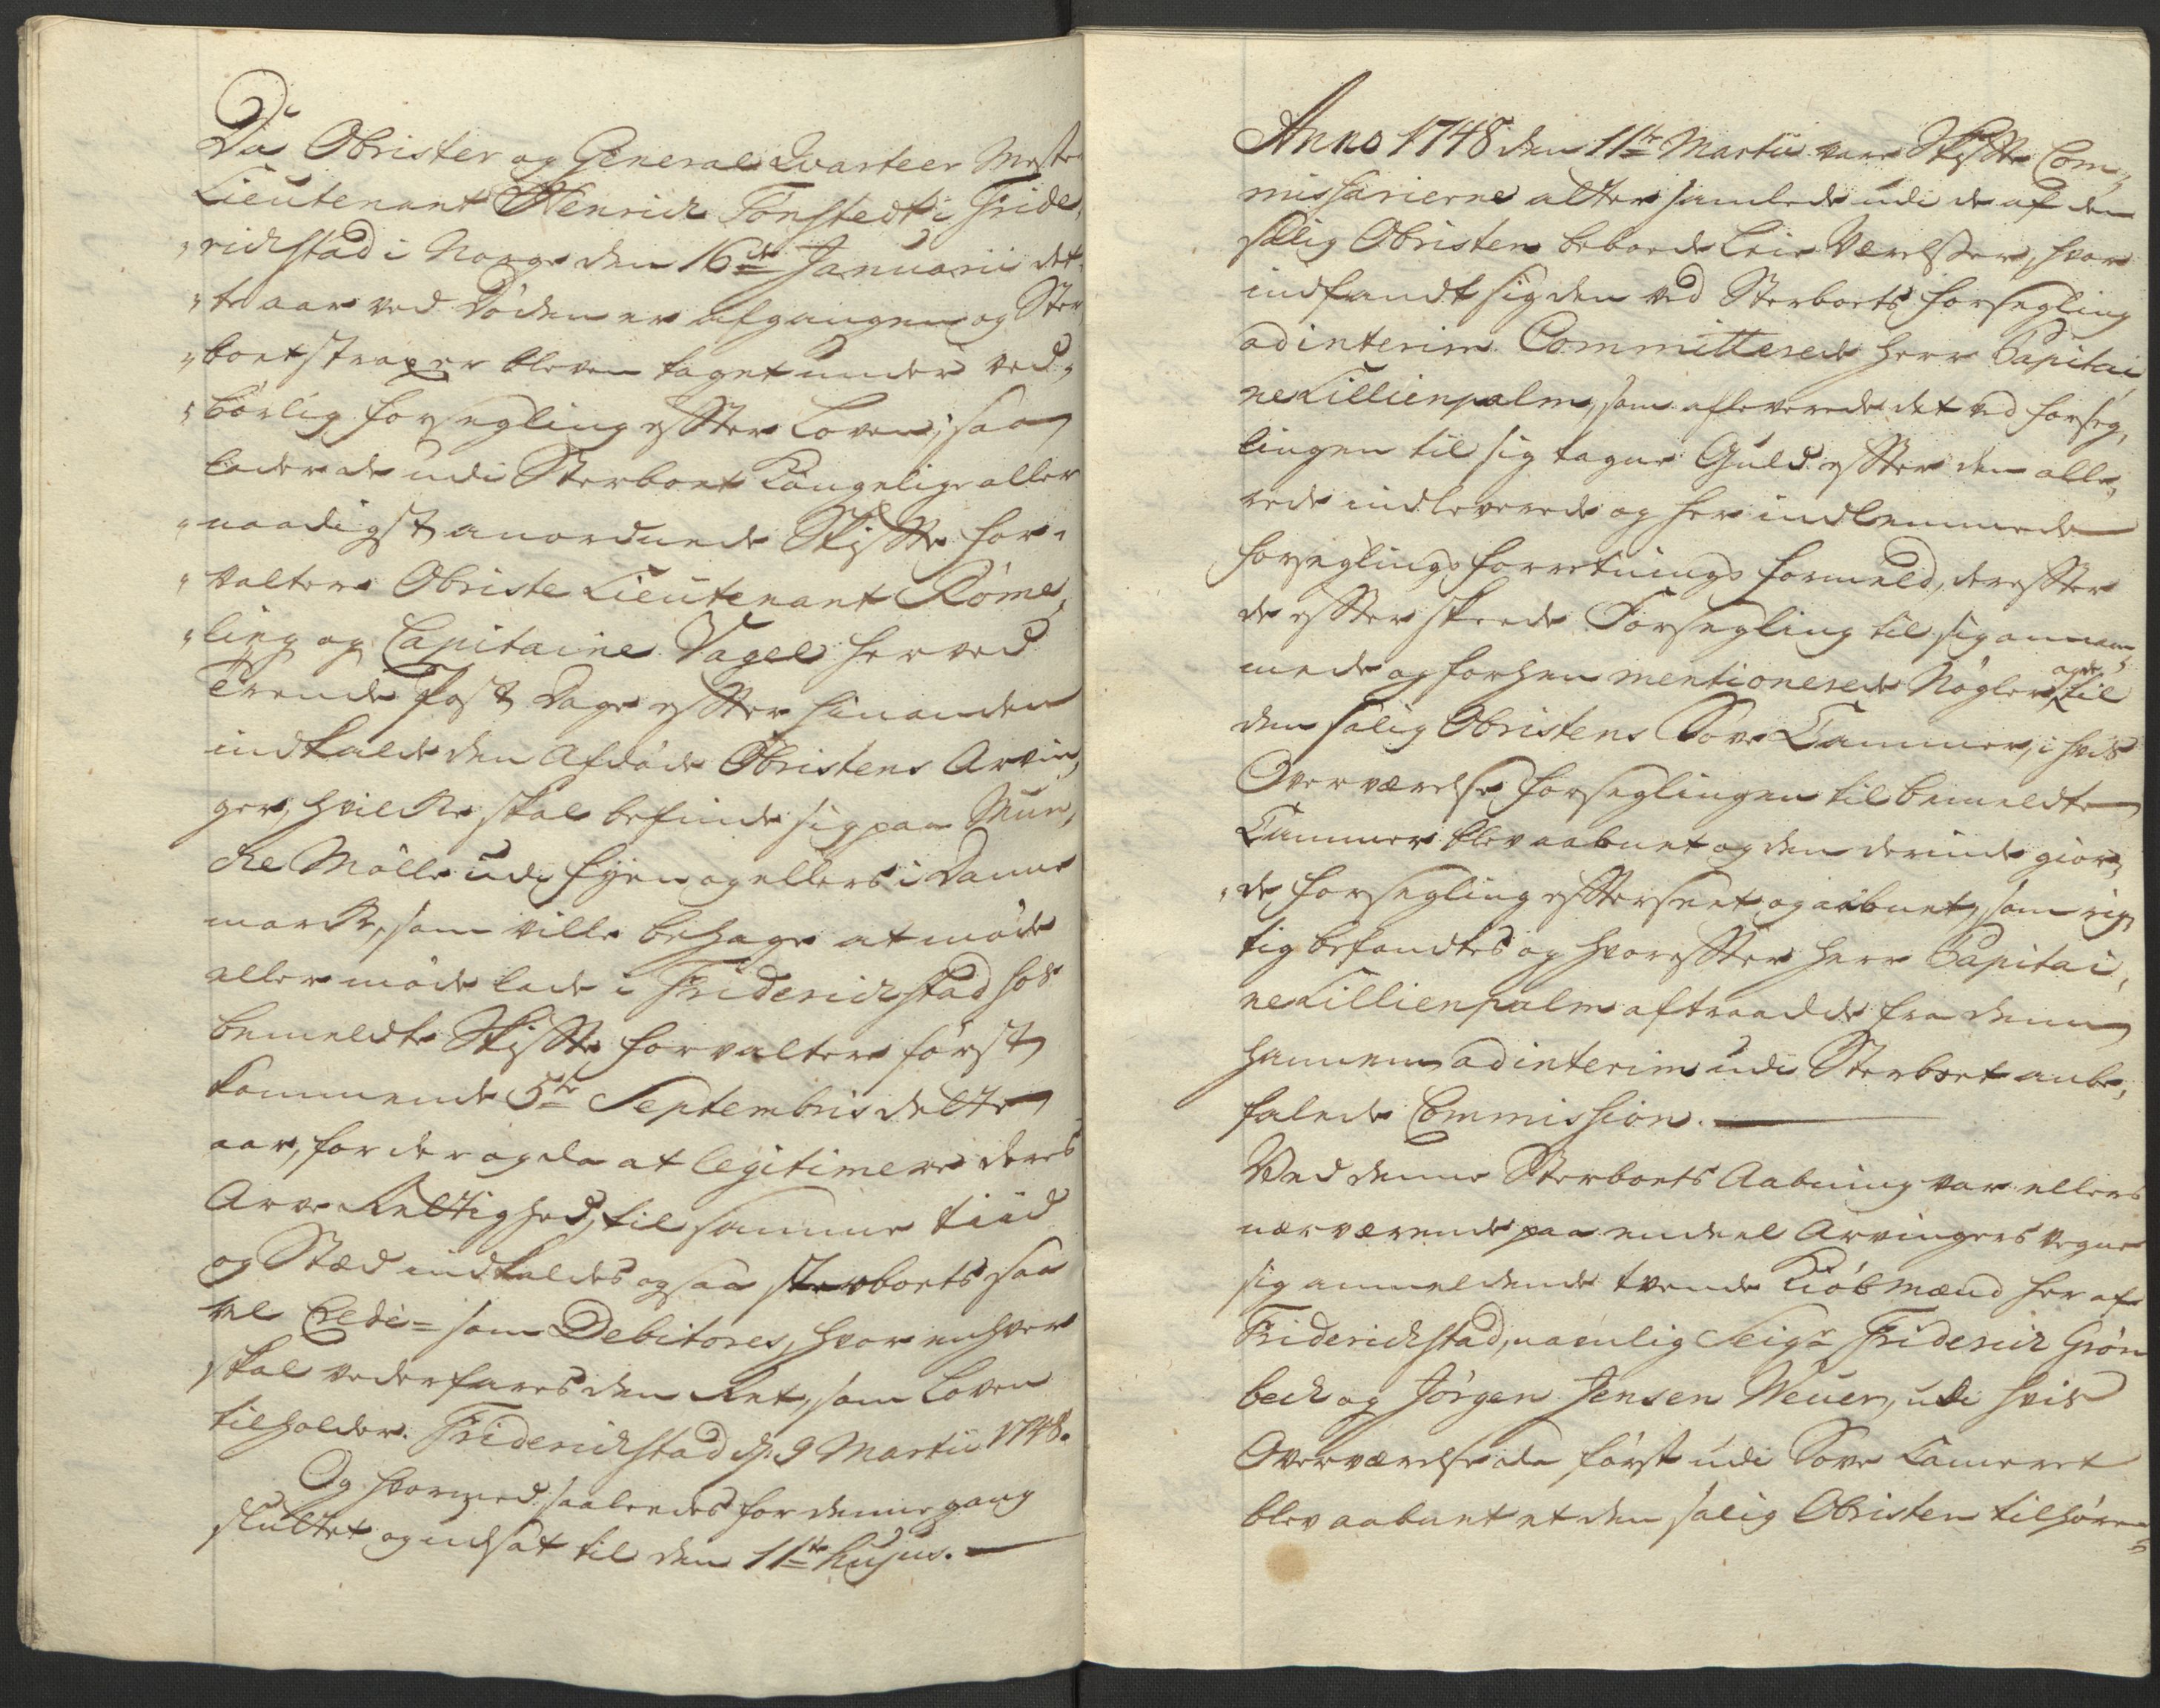 Da Obrister og General Qvarteer Mester
Lieutenant Henrich Tonstedt i Fride,
„richstad i Norge den 16de Januarii det,
„te aar ved Døden er afgangen og Ster
„boet strax er bleven taget under ved,
„børlig forsegling effter Loven; saa
lader de udi Sterboet Kongelige aller
„naadigst anordnede Skiffte for,
„valtere Obriste Lieutenant Røme,
„ling og Capitaine Vagel herved
Trende Post Dage effter hinanden
indkalde den Afdøde Obristens Arvin,
ger, hvilcke skal befinde sig paa Mun,
cke Mølle udi Fyen og ellers i Danne
marck, som ville behage at møde
eller møde lade i Friderichstad hos
bemeldte Skiffte forvaltere først
kommende 5te Septembris dette
aar, for der og da at legitimere deres
Arve Rettighed, til samme tiid
og Stæd indkaldes ogsaa sterboets saa
vel Credi= som Debitores, hvor enhver
skal vederfares den Ret, som Loven
tilholder. Friderichstad d. 9 Martii 1748.
Og hvormed saaledes for denne gang
sluttet og udsat til den 11te hujus.
Anno 1748 den 11te Martii vare Skiffte Com,
missarierne atter samlede udi de af den
salig Obristen beboede Leie Værelser, hvor
indfandt sig den ved Sterboets forsegling
ad interim Committerede Herr Capitai
ne Lillienpalm, som afleverede det ved forseg,
lingen til sig tagne Guld effter den alle,
rede indleverede og her indlemmede
forseglings forretnings formeld, dereffter
de effter skeede Forsegling til sig annam
mede og forhen mentionerede Nøgler og til
den salig Obristens Sove Cammer, i hvis
Overværelse forseglingen til bemeldte
Cammer blev aabnet og den derinde gior,
„de forsegling effterseet og aabnet, som rig,
tig befandtes og hvoreffter Herr Capitai,
ne Lillienpalm aftraadde fra denne
hannem ad interim udi Sterboet anbe,
falede Commission.
Ved denne Sterboets Aabning var ellers
nærværende paa endeel Arvingers vegne
sig anmeldende tvende Kiøbmænd her af
Friderichstad, nemlig Seigr Friderich Grøn
bech og Jørgen Jensen Weuer, udi hvis
Overværelse da først udi Sove Cameret
blev aabnet et den salig Obristen tilhøren